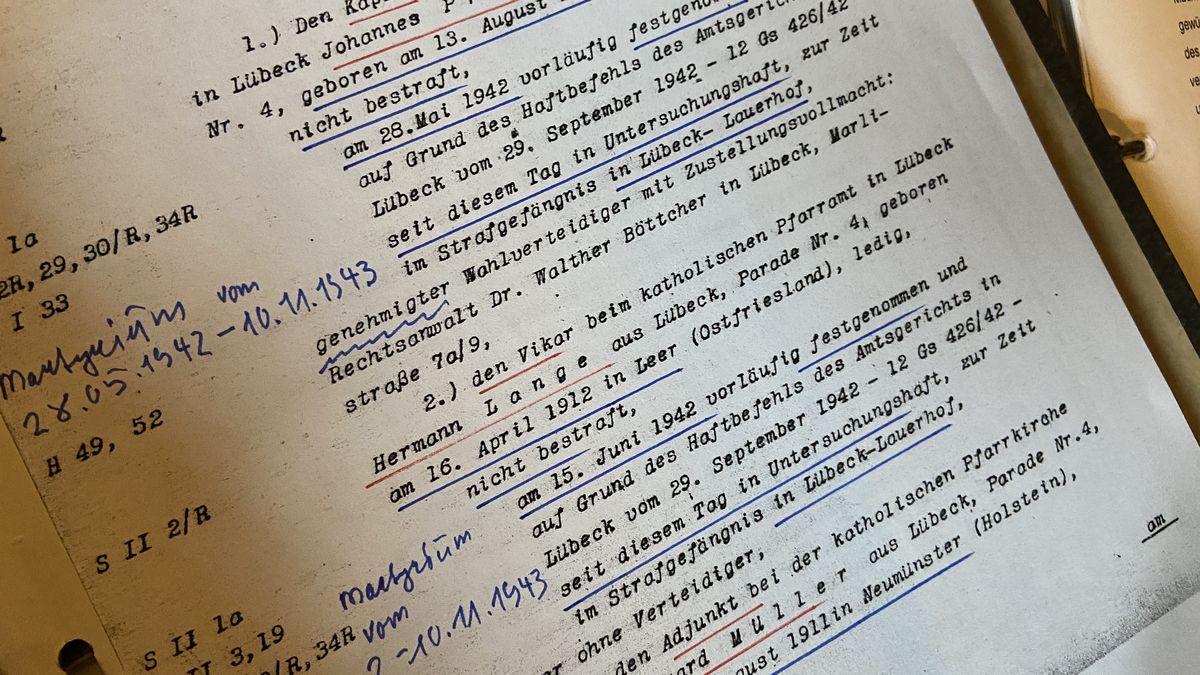 1.) Den
in Lübeck Johannes
Nr. 4, geboren am 13. August
nicht bestraft,
am 28.Mai 1942 vorläufig
auf Grund des Haftbefehls des Amtsgerichts
Lübeck vom 29. September 1942 - 12 Gs 426/42
seit diesem Tag in Untersuchungshaft, zur Zeit
im Strafgefängnis in Lübeck- Lauerhof,
genehmigter Wahlverteidiger mit Zustellungsvollmacht:
Rechtsanwalt Dr. Walther Böttcher in Lübeck, Marli-
straße 7a/9,
2.) den Vikar beim katholischen Pfarramt in Lübeck
Hermann L a n g e aus Lübeck, Parade Nr. 4, geboren
am 16. April 1912 in Leer (Ostfriesland), ledig,
nicht bestraft,
am 15. Juni 1942 vorläufig festgenommen und
auf Grund des Haftbefehls des Amtsgerichts in
Lübeck vom 29. September 1942 - 12 Gs 426/42 -
seit diesem Tag in Untersuchungshaft, zur Zeit
im Strafgefängnis in Lübeck-Lauerhof,
ohne Verteidiger,
den Adjunkt bei der katholischen Pfarrkirche
M ü l l e r aus Lübeck, Parade Nr.4,
1911in Neumünster (Holstein),
am
1a
29, 30/R, 34R
I 33
Martyrium vom
28.05.1942-10.11.1943
H 49, 52
S II 2/R
S II 1a
3, 19
34R
Martyrium
vom
-10.11.1943